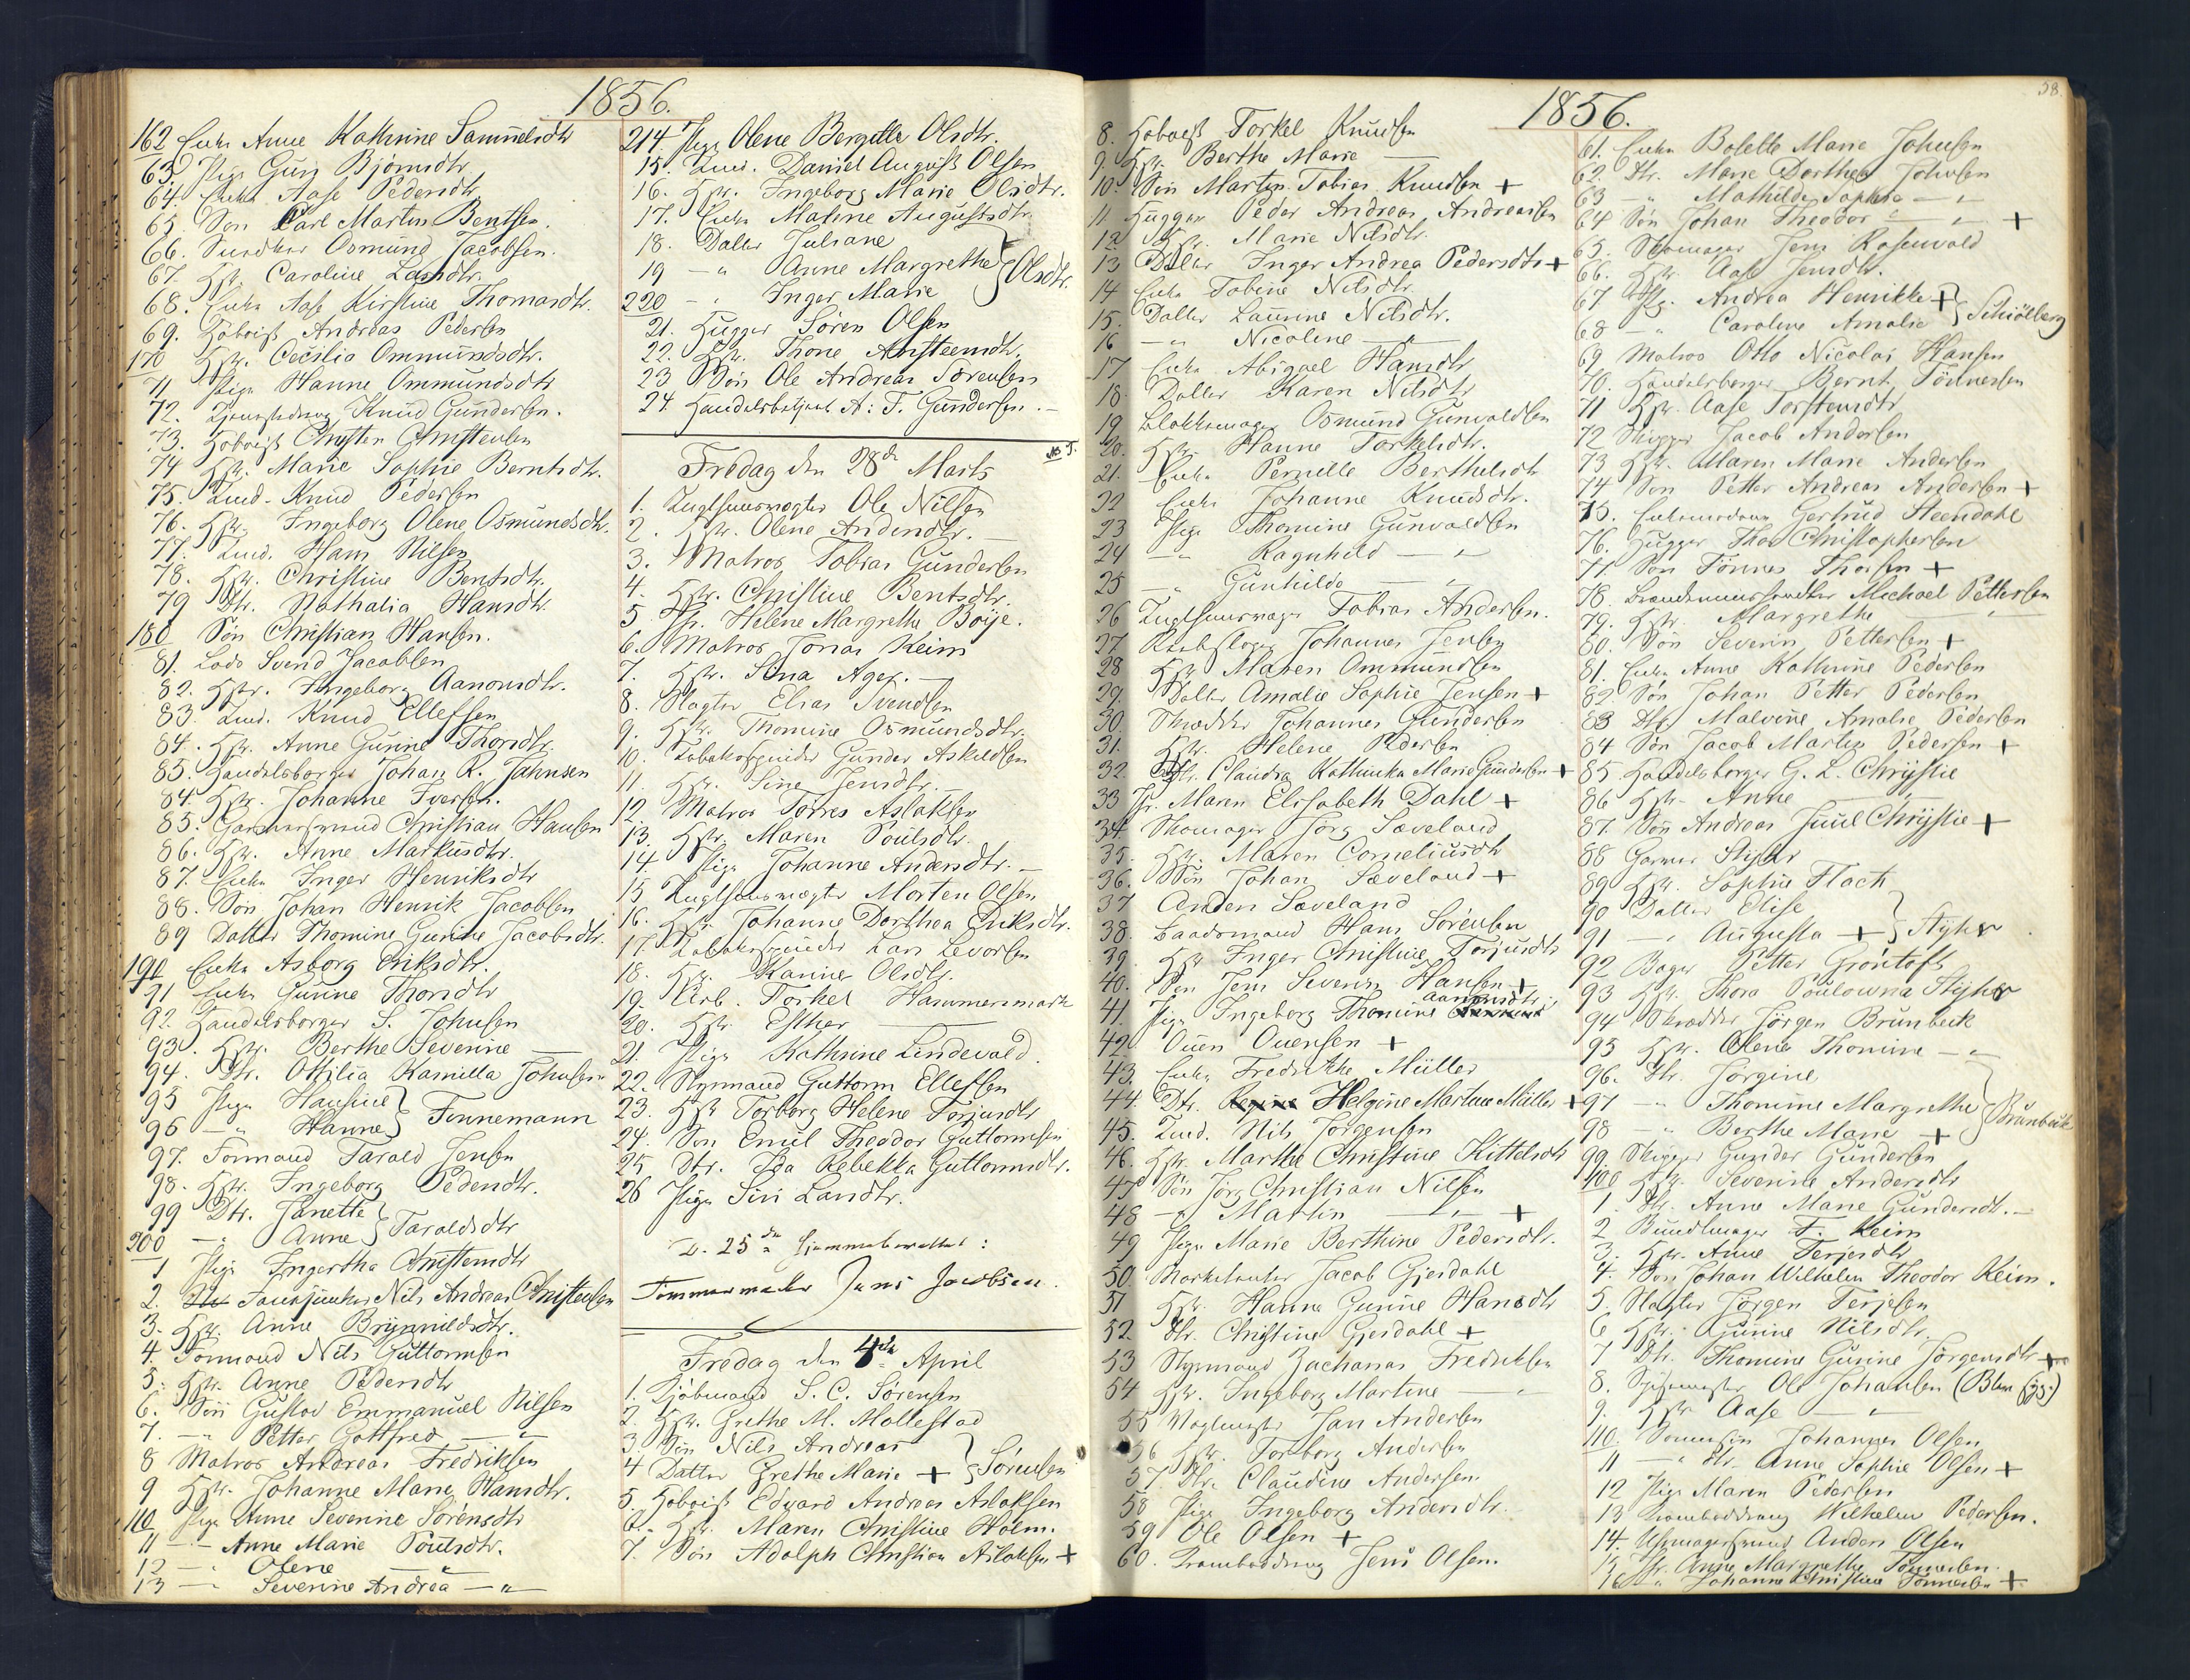 1856.
162 Enke Anne Kathrine Samuelsdtr
63 Pige Guri Bjørnsdtr
64. Enke Aase Pedersdtr
65. Søn Carl Martin Bentsen.
66. Osmund Jacobsen.
67. Hstr. Caroline Larsdtr.
68. Enke Aase Kirstine Thomasdtr.
69. Hoboist Andreas Pedersen
170 Hstr. Cecilia Ommundsdtr.
71 Pige Hanne Ommundsdtr
72. Knud Gundersen.
73. Hoboist Christen Christensen
74 Hstr. Marie Sophie Berntsdtr.
75. Lund. Knud Pedersen
76. Hstr. Ingeborg Olene Osmundsdtr.
77. Lund. Hans Nilsen
78. Hstr. Christine Bentsdtr.
79 Dtr. Nathalia Hansdtr.
180 Søn Christian Hansen.
81. Lods Svend Jacobsen
82. Hstr. Ingeborg Aanonsdtr.
83. Lund. Knud Ellefsen
84. Hstr. Anne Gurine Thorsdtr.
85. Handelsborger Johan R. Jahnsen
84. Hstr. Johanne Iversen.
85. Garversvend Christian Hansen
86. Hstr. Anne Markusdtr.
87. Enke Inger Henriksdtr
88. Søn Johan Henrik Jacobsen
89 Datter Thomine Gurine Jacobsdtr.
190 Enke Asborg Eriksdtr.
91 Enke Gurine Thorsdtr
92. Handelsborger S. Johnsen
93. Hstr. Berthe Severine —
94. Dtr. Otilia Kamilla Johnsen
95 Pige Hansine }
96 — " Hanne } Tønnemann
97. Formand Tarald Jensen
98. Hstr. Ingeborg Pedersdtr.
99 Dtr. Janette }
200 — " Anne } Taraldsdtr
1 Pige Ingertha Christensdtr
2. Nils Andreas Christensen
3. Hstr. Anne Brynnildsdtr.
4. Formand Nils Guttormsen
5. Hstr. Anne Pedersdtr
6. Søn Gustav Emmanuel Nilsen
7. — " Petter Gottfred — "
8 Matros Andreas Fredriksen
9 Hstr. Johanne Marie Hansdtr.
110 Pige Anne Severine Sørensdtr
11 — " Anne Marie Poulsdtr.
12 — " Olene — "
13 — " Severine Andrea — "
214. Pige Olene Bergitte Olsdtr.
15. Lund. Daniel August Olsen
16. Hstr. Ingeborg Marie Olsdtr.
17. Enke Malene Augustsdtr
18. Datter Juliane }
19 — " Anne Margrethe } Olsdtr.
220 — " Inger Marie }
21. Hugger Søren Olsen
22. Hstr. Thone Anstensdtr.
23 Søn Ole Andreas Sørensen
24. Handelsbetjent A: T. Gundersen. —
No 5.
Fredag den 28de Marts
1. Ole Nilsen
2. Hstr. Olene Andersdtr. —
3. Matros Tobias Gundersen
4. Hstr. Christine Bentsdtr.
5. Jfr. Helene Margrethe Boije.
6. Matros Jonas Keim
7. Hstr. Sina Ager. —
8. Slagter Elias Svendsen
9. Hstr. Thomine Osmundsdtr.
10. Tobakspinder Gunder Askildsen
11. Hstr. Sine Jensdtr.
12. Matros Tørres Aslaksen
13. Hstr. Maren Poulsdtr.
14. Pige Johanne Andersdtr. —
15 Morten Olsen
16. Hstr. Johanne Dorthea Eriksdtr.
17 Tobakspinder Lars Levorsen
18. Hstr. Karine Olsdtr.
19. Arb. Torkel Hammersmark
20. Hstr Esther —
21. Pige Kathrine Lindevald.
22. Styrmand Guttorm Ellefsen
23. Hstr Torborg Helene Torjusdtr
24. Søn Emil Theodor Guttormsen
25 Dtr. Ida Rebekka Guttormsdtr.
26 Pige Siri Larsdtr.
D. 25de Hjemmeberettet:
Tømmermand Jens Jacobsen.
Fredag den 4de April
1. Kjøbmand S. C. Sørensen
2. Hstr. Grethe M. Mollestad
3. Søn Nils Andreas }
4 Datter Grethe Marie + } Sørensen
5. Hoboist Edvard Andreas Aslaksen
6. Hstr. Maren Christine Holm.
7. Søn Adolph Christian Aslaksen +
58.
1856.
8. Hoboist Torkel Knudsen
9. Hstr. Berthe Marie —
10. Søn Martin Tobias Knudsen +
11 Hugger Peder Andreas Andreassen
12 Hstr. Marie Nilsdtr.
13 Datter Inger Andrea Pedersdtr +
14 Enke Tobine Nilsdtr.
15. Datter Laurine Nilsdtr.
16 — " Nicoline —
17 Enke Abigael Hansdtr
18. Datter Karen Nilsdtr
19 Blokkemager Osmund Gunvaldsen
20. Hstr. Hanne Torkelsdtr.
21. Enke Pernille Berthelsdtr
22 Enke Johanne Knudsdtr.
23 Pige Thomine Gunvaldsen
24 " Ragnhild — "
25 — " Gunhilde — "
26 Tobias Andersen.
27 Johannes Jensen
28 Hstr Maren Ommundsen
29. Datter Amalie Sophie Jensen +
30. Skrædder Johannes Gundersen
31. Hstr. Helene Pedersen
32. Dtr. Claudia Kathinka Marie Gundersen +
33 Jfr. Maren Elisabeth Dahl +
34. Skomager Jørg Læveland
35. Hstr. Maren Corneliusdtr
36. Søn Johan Læveland +
37 Anders Læveland
38. Baadsmand Hans Sørensen
39. Hstr Inger Christine Torjusdtr
40. Søn Jens Severin Hansen +
41. Pige Ingeborg Thomine Aanonsdtr.
42. Ouen Ouensen +
43. Enke Fredrikke Müller
44. Dtr. Helgine Martine Müller +
45. Lund. Nils Jørgensen
46. Hstr. Marthe Christine Kittelsdtr
47 Søn Jørg Christian Nilsen
48 — " Martin — " +
49 Pige Marie Berthine Pedersdtr.
50. Jacob Gjerdahl
51 Hstr. Hanne Gurine Hansdtr
52 Dtr. Christine Gjerdahl +
53 Styrmand Zacharias Fredriksen
54 Hstr. Ingeborg Martine — "
55 Jan Andersen
56 Hstr. Torborg Andersen
57. Dtr. Claudine Andersen
58 Pige Ingeborg Andersdtr.
59 Ole Olsen +
60. Jens Olsen.
61. Enke Bolette Marie Johnsen
62. Dtr. Marie Dorthea Johnsen
63 — " Mathilde Sophie — "
64 Søn Johan Theodor — " +
65. Skomager Jens Rosenvold
66. Hstr Aase Jensdtr.
67 Pg. Andrea Henrikke + }
68 — " Caroline Amalie } Schiölberg
69 Matros Otto Nicolai Hansen
70. Handelsborger Bernt Tönnesen
71 Hstr. Aase Torstensdtr
72 Skipper Jacob Andersen
73 Hstr. Maren Marie Andersen
74 Søn Petter Andreas Andersen +
75. Gertrud Steendahl
76. Hugger Thor Christophersen
77 Søn Tönnes Thorsen +
78. Michael Pettersen
79. Hstr. Margrethe — "
80. Søn Severin Pettersen +
81. Enke Anne Kathrine Pedersen
82 Søn Johan Petter Pedersen
83 Dtr. Malvine Amalie Pedersen
84 Søn Jacob Martin Pedersen +
85. Handelsborger G. L. Chrystie
86 Hstr. Anne — "
87. Søn Andreas Juul Chrystie +
88 Garver Styhr
89 Hstr. Sophie Flach
90 Datter Elise }
91 — " Augusta + } Styhr
92 Bager Petter Gröntoft
93 Hstr. Thora Poulowna Styhr
94 Skrædder Jörgen Brunbeck
95 Hstr. Olena Thomine — "
96. Dtr. Jørgine }
97 — " Thomine Margrethe } Brunbeck
98 — " Berthe Marie + }
99 Skipper Gunder Gundersen
100 Hstr. Severine Andersdtr
1. Dtr. Anne Marie Gundersdtr. —
2 Bundtmager F. Keim
3. Hstr. Anne Terjesdtr
4. Søn Johan Wilhelm Theodor Keim.
5. Slagter Jörgen Terjesen
6 Hstr. Gunine Nilsdtr.
7 Dtr. Thomine Gurine Jörgensdtr +
8. Ole Johansen
9. Hstr Aase — "
110. Johannes Olsen
11 — " Dtr. Anne Sophie Olsen +
12 Pige Maren Pedersen
13 Wilhelm Pedersen.
14. Anders Olsen
15 Jfr. Anne Margrethe Tönnesen.
16 " Johanne Christine Tönnesen +